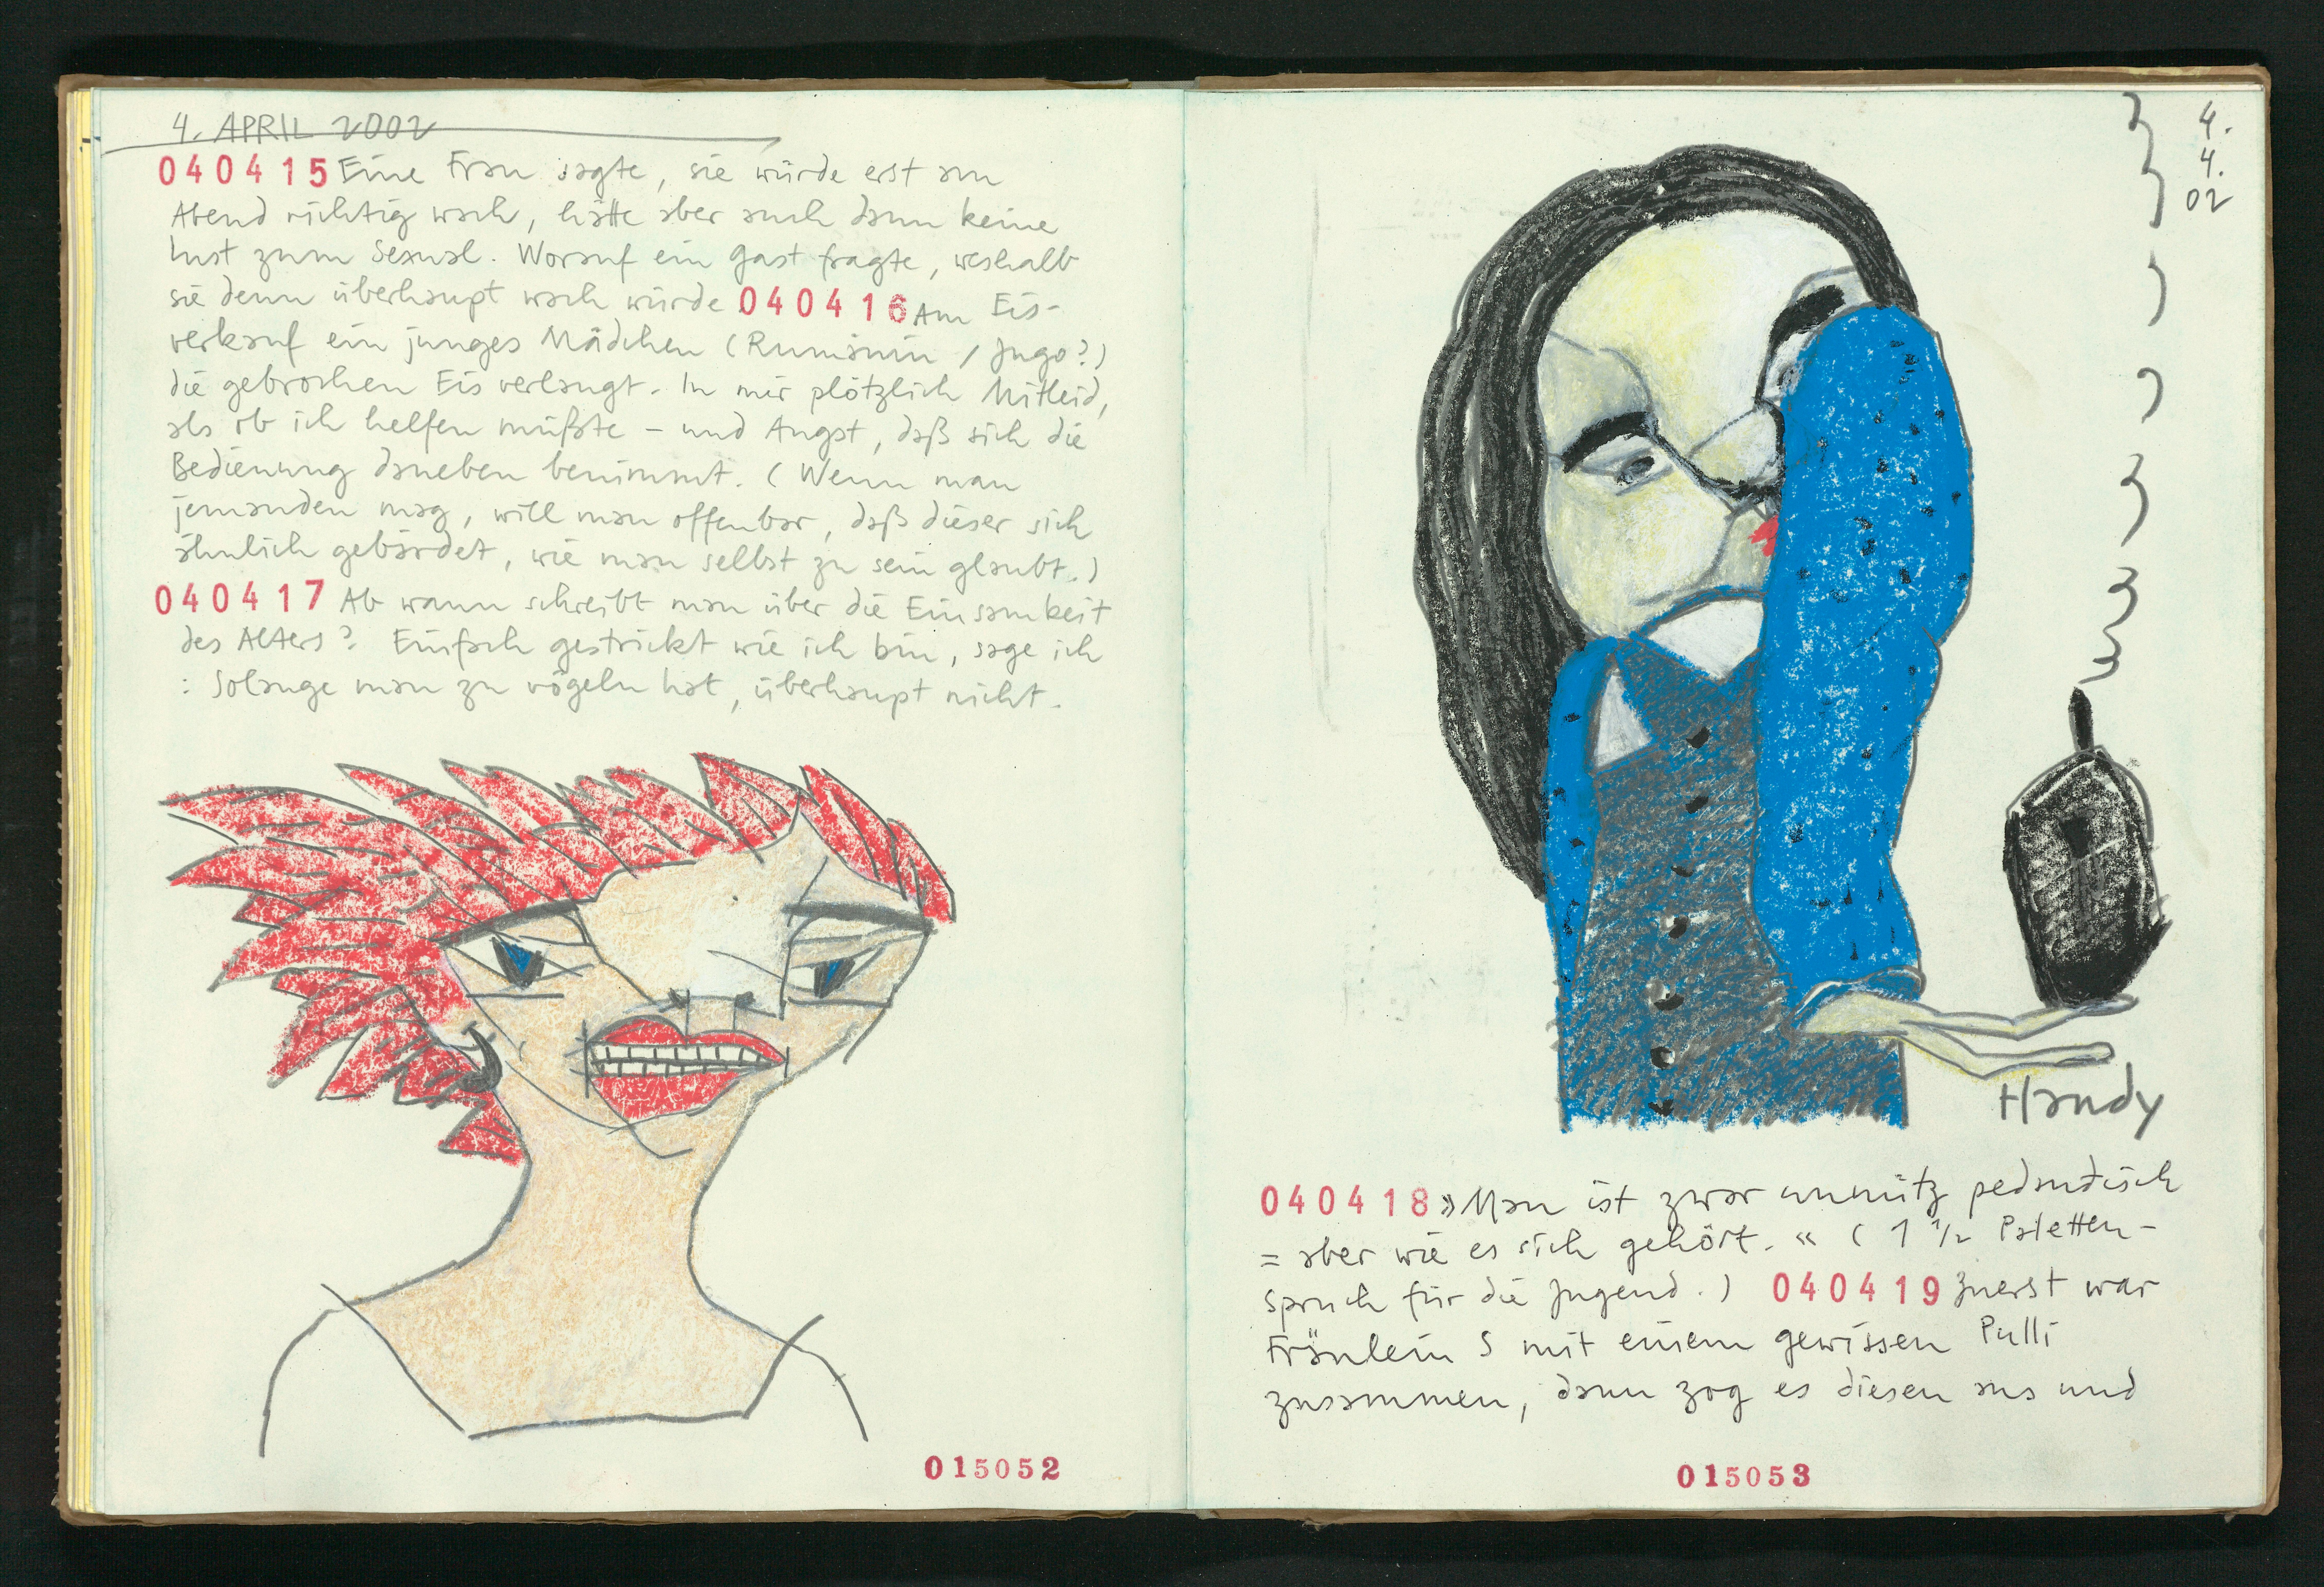 4. APRIL 2002
040415 Eine Frau sagte, sie würde erst am
Abend richtig wach, hätte aber auch dann keine
Lust zum Sexual. Worauf ein Gast fragte, weshalb
sie denn überhaupt wach würde 040416 Am Eis-
verkauf ein junges Mädchen (Rumänin / Jugo?)
die gebrochen Eis verlangt. In mir plötzlich Mitleid,
als ob ich helfen müßte – und Angst, daß sich die
Bedienung daneben benimmt. (Wenn man
jemanden mag, will man offenbar, daß dieser sich
ähnlich gebärdet, wie man selbst zu sein glaubt.)
040417 Ab wann schreibt man über die Einsamkeit
des Alters? Einfach gestrickt wie ich bin, sage ich
: Solange man zu vögeln hat, überhaupt nicht.
015052
4.
4.
02
Handy
040418 »Man ist zwar unnütz pedantisch
= aber wie es sich gehört.« (1 1/2 Paletten-
spruch für die Jugend.) 040419 Zuerst war
Fräulein S mit einem gewissen Pulli
zusammen, dann zog es diesen aus und
015053